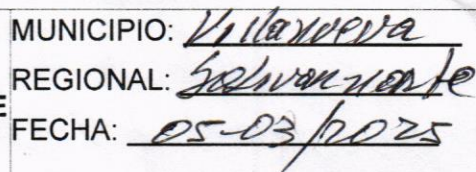 MUNICIPIO: Villanueva
REGIONAL:
E
FECHA: 05-03/2025